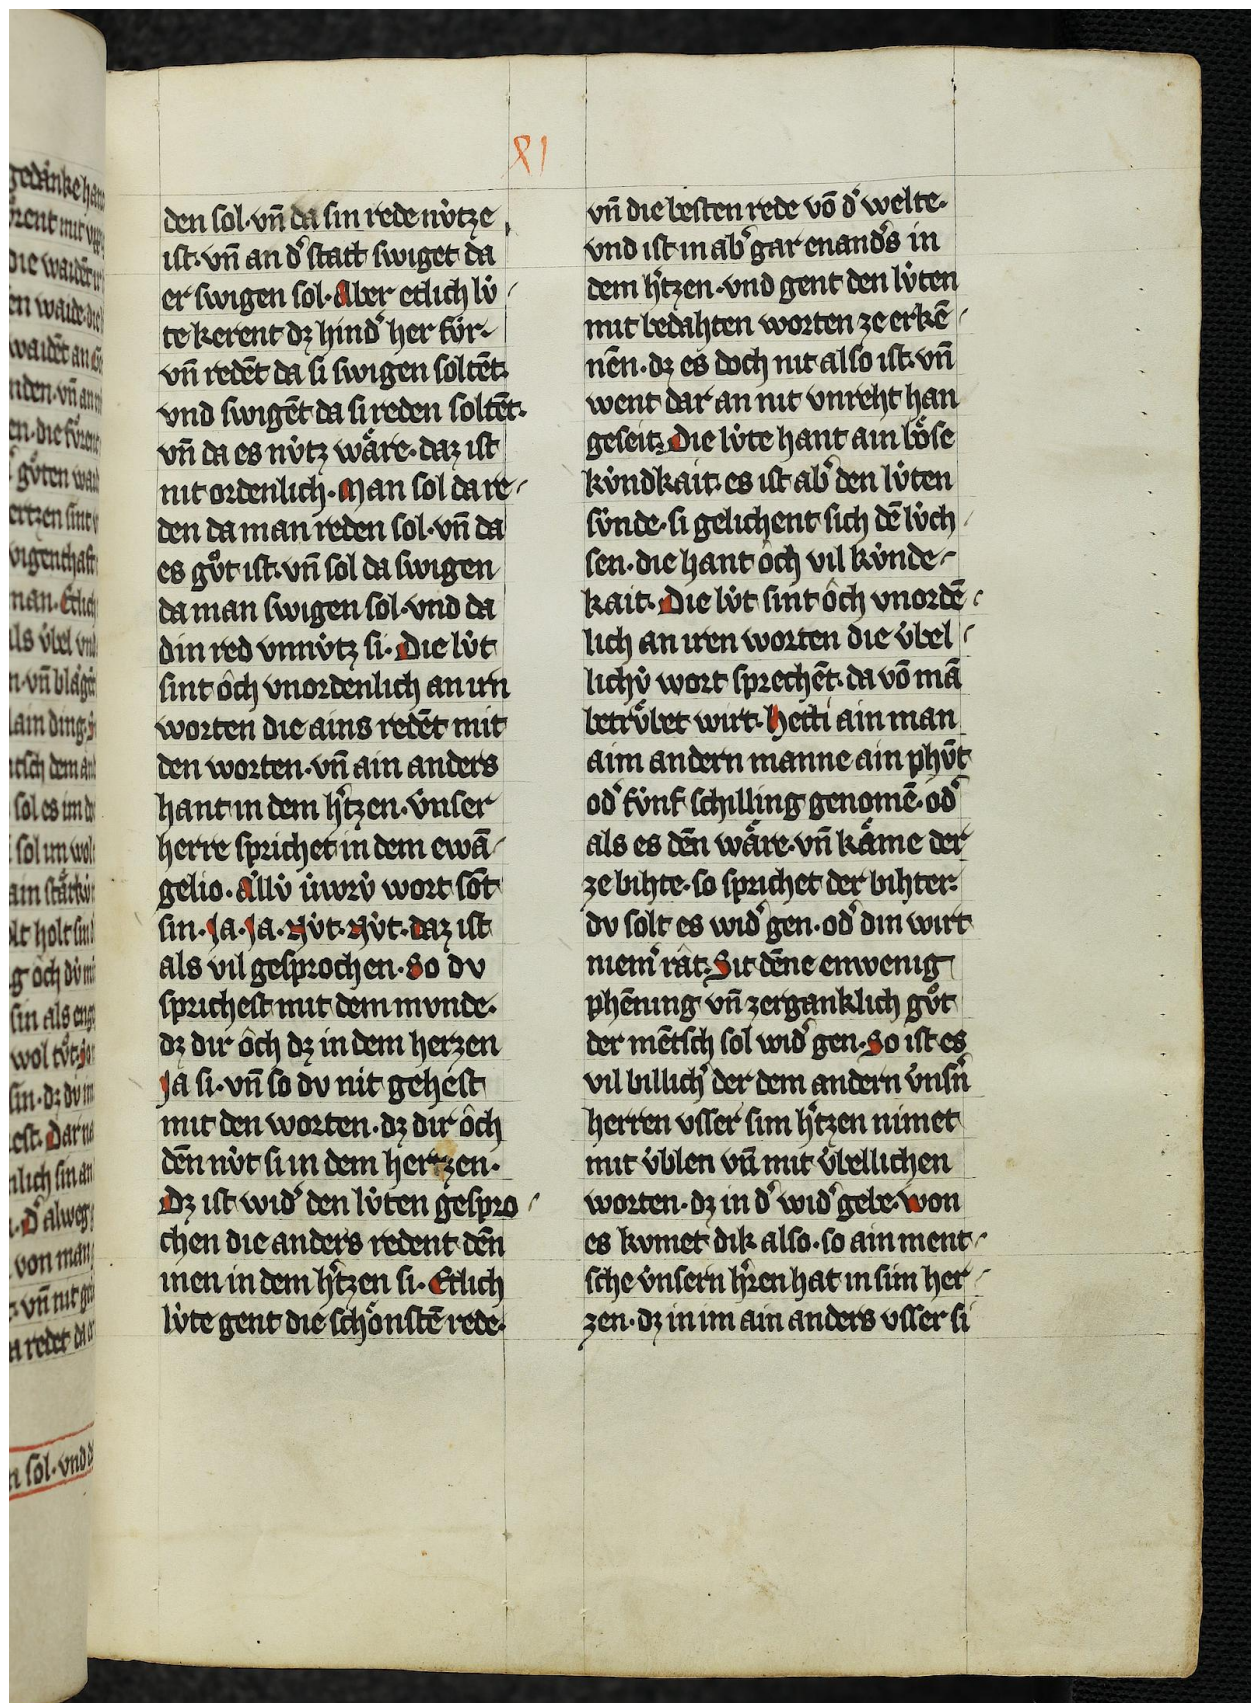 XI
den sol· vn̄ da sin rede nv̇tze
ist· vn̄ an dˀ statt swiget da
er swigen sol· Aber etlich lv̇
te kerent dz hindˀ her fúr·
vn̄ redēt da si swigen soltēt·
vnd swigēt da si reden soltēt·
vn̄ da es nv̇tz wāͤre· daz ist
nit ordenlich· Man sol da re
den da man reden sol· vn̄ da
es gv̊t ist· vn̄ sol da swigen
da man swigen sol· vnd da
din red vnnv̇tz si· Die lv̇t
sint ôch vnordenlich an irn
worten die ains redēt mit
den worten· vn̄ ain anders
hant in dem hˀtzen· v̇nser
herre sprichet in dem ewā
gelio· Allv̇ úwrv̇ wort sōt
sin· Ja· Ja· Nv̇t· Nv̇t· daz ist
als vil gesprochen· So dv
sprichest mit dem mvnde·
dz dir ôch dz in dem herzen
Ja si· vn̄ so dv nit gehest
mit den worten· dz dir ôch
dēn nv̇t si in dem hertzen·
Dz ist widˀ den lv̇ten gespro
chen die anders redent dēn
inen in dem hˀtzen si· Etlich
lv̇te gent die schoͤnstē rede·
vn̄ die besten rede vō dˀ welte·
vnd ist in abˀ gar enandˀs in
dem hˀtzen· vnd gent den lv̇ten
mit bedahten worten ze erkē
nēn· dz es doch nit also ist· vn̄
went dar an nit vnreht han
geseit· Die lv̇te hant ain boͤse
kv̇ndkait· es ist abˀ den lv̇ten
sv̇nde· si gelichent sich dē lv̇ch
sen· die hant ôch vil kv̇nde
kait· Die lv̇t sint ôch vnordē
lich an iren worten die v̇bel
lichv̇ wort sprechēt· da vō mā
betrv̊bet wirt· Hetti ain man
aim andern manne ain phv̄t
odˀ fúnf schilling genomē· odˀ
als es dēn waͤre· vn̄ kaͤme der
ze bihte· so sprichet der bihter·
dv solt es widˀ gen· odˀ din wirt
niemˀ rât· Sit dēne einwenig
phēning vn̄ zerganklich gv̊t
der mētsch sol widˀ gen· So ist es
vil billichˀ der dem andern v̇nsˀn
herren vsser sim hˀtzen nimet
mit v̇blen vn̄ mit v̇bellichen
worten· dz in dˀ widˀ gebe· Won
es kvmet dik also· so ain ment
sche v̇nsern hˀren hat in sim her
zen· dz in im ain anders vsser si